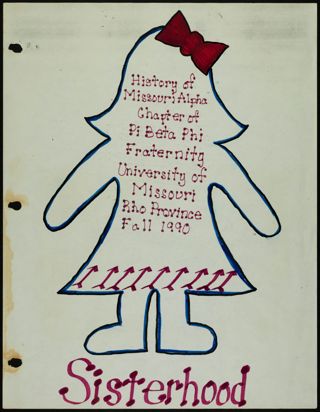 History of
Missouri Alpha
Chapter of
Pi Beta Phi
Fraternity
University of
Missouri
Rho Province
Fall 1990
Sisterhood